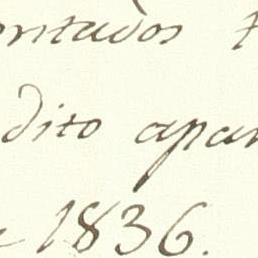 ontados
dito apar
e 1836.